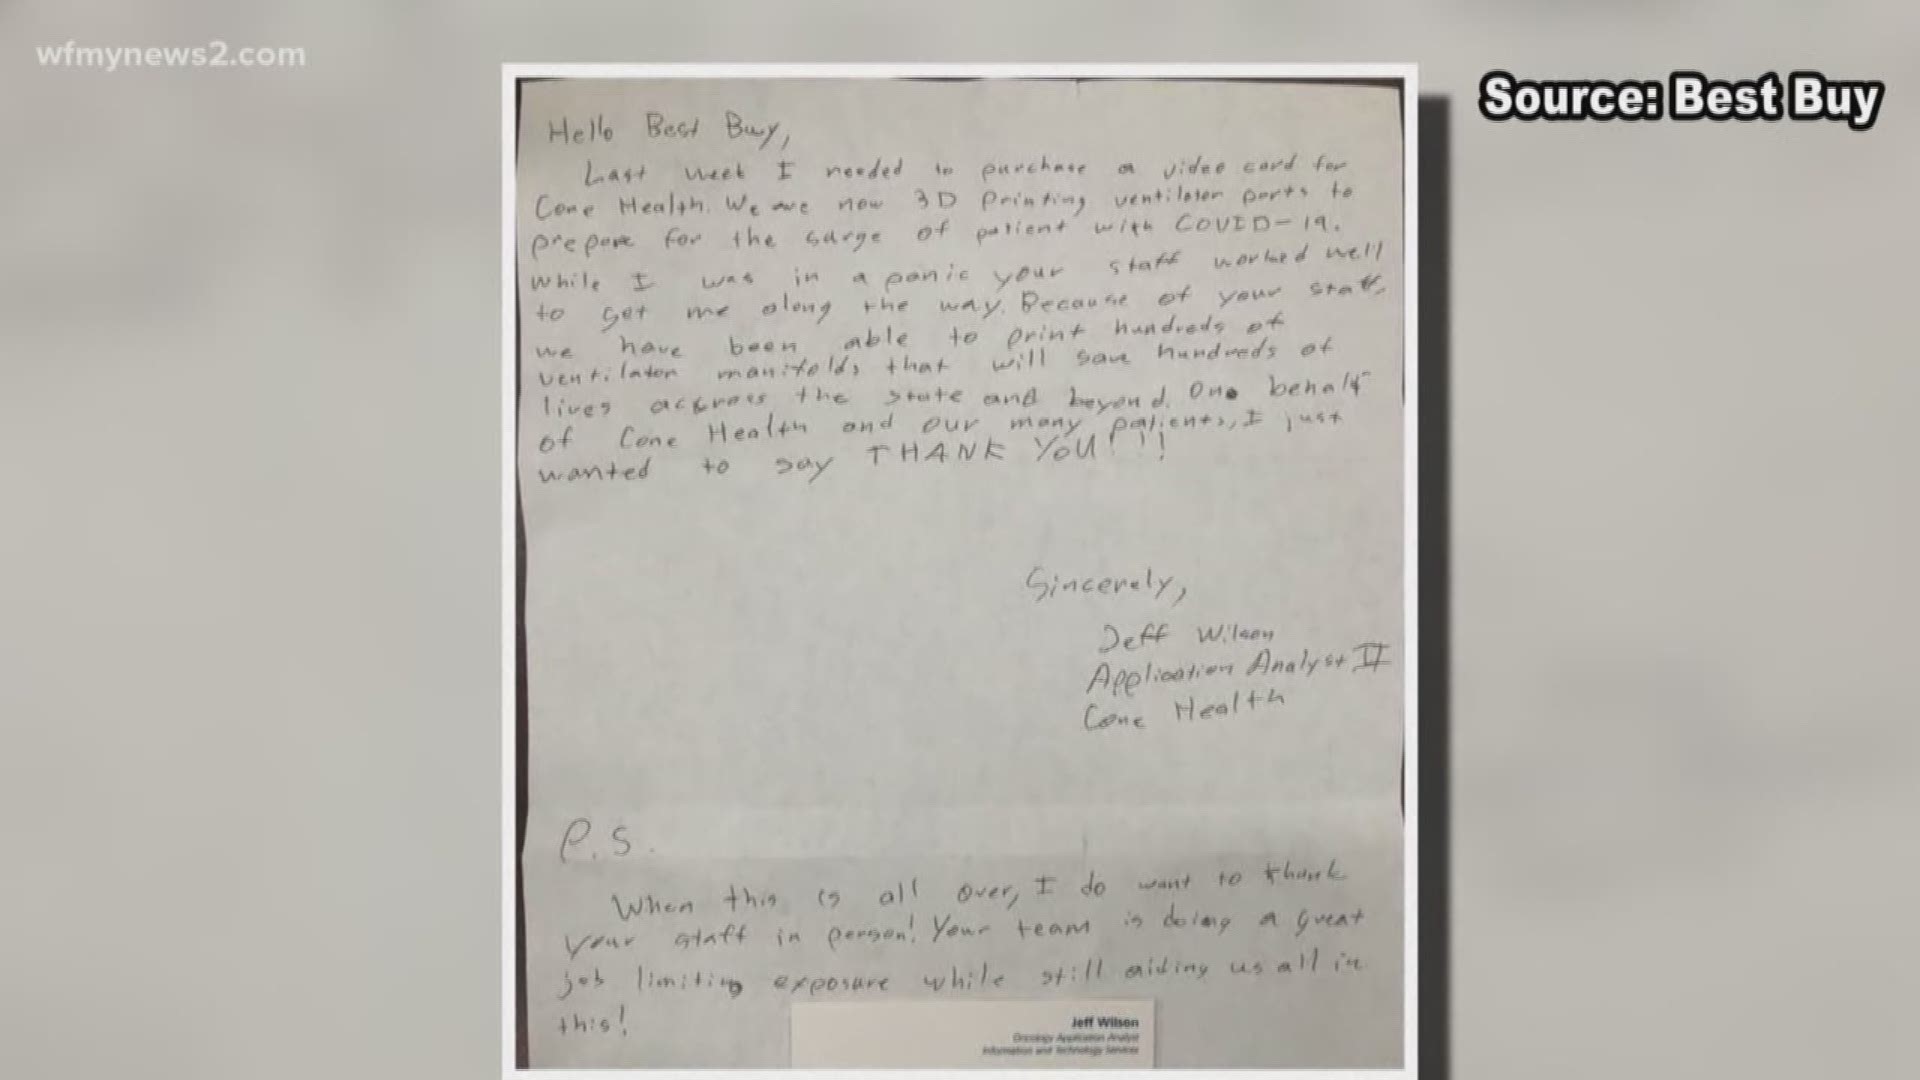 wfmynews2.com
Source: Best Buy
Hello Best Buy,
Last week I needed to purchase a video card for
Cone Health. We are now 3D Printing ventilator parts to
prepare for the surge of patient with COVID-19.
While I was in a panic your staff worked well
to get me along the way. Because of your staff,
we have been able to print hundreds of
ventilator manifolds that will save hundreds of
lives accross the state and beyond. On behalf
of Cone Health and our many patients, I just
wanted to say THANK YOU!!!
Sincerely,
Jeff Wilson
Application Analyst II
Cone Health
P.S.
When this is all over, I do want to thank
your staff in person! Your team is doing a great
job limiting exposure while still aiding us all in
this!
Jeff Wilson
Oncology Application Analyst
Information and Technology Services